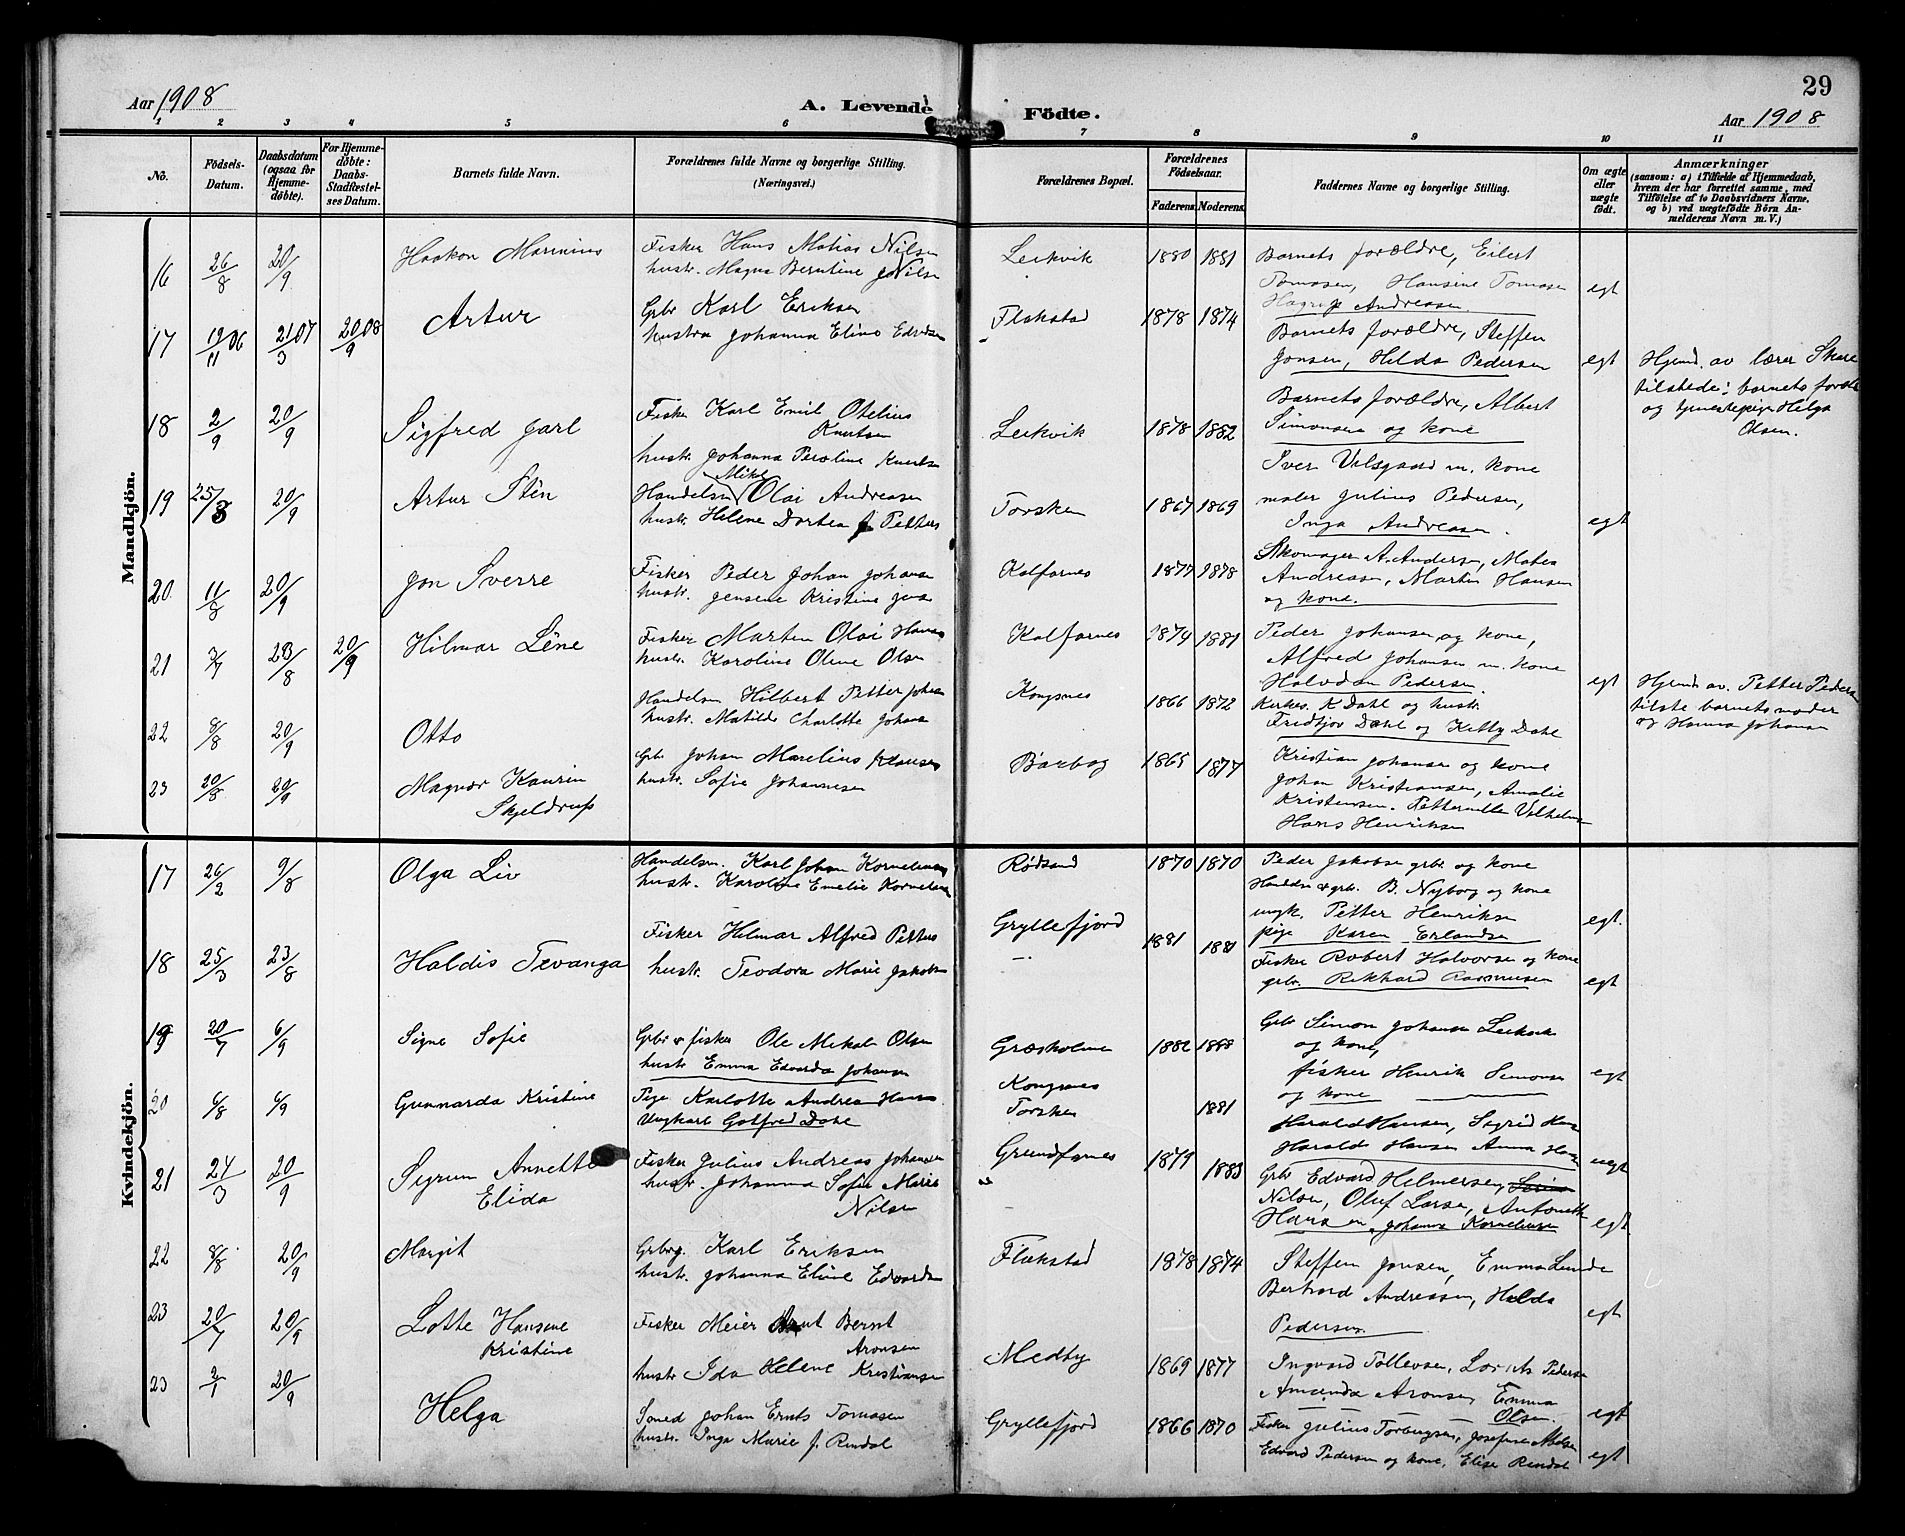 29
Aar 1908
A. Levende Födte.
Aar 1908
1 2 3 4 5 6 7 8 9 10 11
No.
Födsels-
Datum.
Daabsdatum
(ogsaa for
Hjemme-
döbte).
For Hjemme-
döbte:
Daabs-
Stadfæstel-
ses Datum.
Barnets fulde Navn.
Forældrenes fulde Navne og borgerlige Stilling.
(Næringsvei.)
Forældrenes Bopæl.
Forældrenes
Födselsaar.
Faderens. Moderens.
Faddernes Navne og borgerlige Stilling.
Om ægte
eller
uægte
født.
Anmærkninger
(saasom: a) i Tilfælde af Hjemmedaab,
hvem der har forrettet samme, med
Tilföielse af to Daabsvidners Navne,
og b) ved uægtefödte Börn An-
melderens Navn m. V.)
Mandkjön.
16 26/8 20/9 Haakon Marinius
Fisker Hans Matias Nilsen
hustr. Magna Berntine Nilsen
Leikvik 1880 1881
Barnets forældre, Eilert
Tomasen, Hansine Tomasen
Andreasen
egt
17 19/11 06 21/3 07 20/9 08 Artur
Grbr Karl Eriksen
hustru Johanna Eline
Flakstad 1878 1874
Barnets forældre, Steffen
Jonsen, Helda Pedersen
egt
Hjemd. av lærer Skare
tilstede: barnets foræld
og tjenestepige Helga
Olsen.
18 2/9 20/9 Sigfred Jarl
Fisker Karl Emil Otelius
Knutsen
hustr. Johanna Peroline Knutsen
Leikvik 1878 1882
Barnets forældre, Albert
Simonsen og kone
19 25/3 20/9 Artur Stén
Handelsm Mikal Olai Andreasen
hustr. Helene Dortea
Torsken 1867 1869
Iver Valsgaard m. kone
maler Julius Pedersen,
Inga Andreasen.
egt
20 11/8 20/9 Jon Sverre
Fisker Peder Johan Johansen
hustr. Jensene Kristine
Kalfarnes 1877 1878
Skomager A. Andersen, Matea
Andreasen, Martin Hansen
og kone.
21 3/7 23/8 20/9 Hilmar Léne
Fisker Marten Olai Hansen
hustr. Karoline Oline Olsen
Kalfarnes 1874 1881
Peder Johansen og kone,
Alfred Johansen m. kone
Halvdan Pedersen.
egt
Hjemd. av. Petter Pedersen
tilste barnets moder
og Hanna Johansen
22 8/8 20/9 Otto
Handelsm Hilbert Petter Johansen
hustr. Matilde Charlotte Johansen
Kongsnes 1866 1872
Kirkes. K Dahl og hustr.
Fredtjov Dahl og Ketty Dahl
23 20/8 20/9 Magnor Kaurin
Skjeldrup
Grbr Johan Marelius Klausen
hustr. Sofie Johannesen
Barbog 1865 1877
Kristian Johansen og kone
Johan Kristiansen, Amalie
Kristensen. Petternelle Vilhelmsen
Hans Henriksen
Kvindekjön.
17 26/2 9/8 Olga Liv
Handelsm. Karl Johan Korneliusen
hustr. Karoline Emelie Korneliusen
Rødsand 1870 1870
Peder Jakobsen grbr og kone
Handlsm & grbr. B. Nyborg og kone
ungk. Petter Henriksen
pige Karen Erlandsen
egt.
18 25/3 23/8 Haldis Tevanga
Fisker Hilmar Alfred Petters
hustr. Teodora Marie Jakobsen
Gryllefjord 1881 1881
Fisker Robert Halvorsen og kone
grbr. Rikhard Rasmusen
egt
19 20/7 6/9 Signe Sofie
Grbr & fisker Ole Mikal Olsen
hustr Emma Edvarda Johansen
Græsholmen 1882 1888
Grbr Simon Johansen Leikvik
og kone,
fisker Henrik Simonsen
og kone
egt
20 6/8 6/9 Gunnarda Kristine
Pige Karlotte Andrea Hansen
Ungkarl Gotfred Dahl
Kongsnes
Torsken
1881
Harald Hansen, Sigrid Hansen
Harald Hansen Anna Hansen
uegt
21 24/3 20/9 Sigrun Annette
Elida
Fisker Julius Andreas Johansen
hustr. Johanna Sofie Marie
Nilsen
Grundfarnes 1879 1883
Grbr Edvard Helmersen,
Nilsen, Oluf Larsen, Antonette
Hansen, Johanna Korneliusen
egt
22 8/8 20/9 Margit
Grbrg. Karl Eriksen
hustr. Johanna Eline Edvardsen
Flakstad 1878 1874
Steffen Jonsen, Emma Lunde
Bertrand Andreassen, Helda
Pedersen.
egt
23 20/7 20/9 Lotte Hansine
Kristine
Fisker Meier Bernt
Aronsen
hustr Ida Helene Kristiansen
Medby 1869 1877
Ingvard Tollevsen, Pedersen
Amanda Aronsen, Emma
Olsen.
egt
23 2/1 20/9 Helga
Smed Johan Ernts Tomasen
hustr. Inga Marie f. Rendal
Gryllefjord 1866 1870
Fisker Julius Torbergsen, Josefine Nilsen
Edvard Pedersen og kone, Elise Rendal
egt